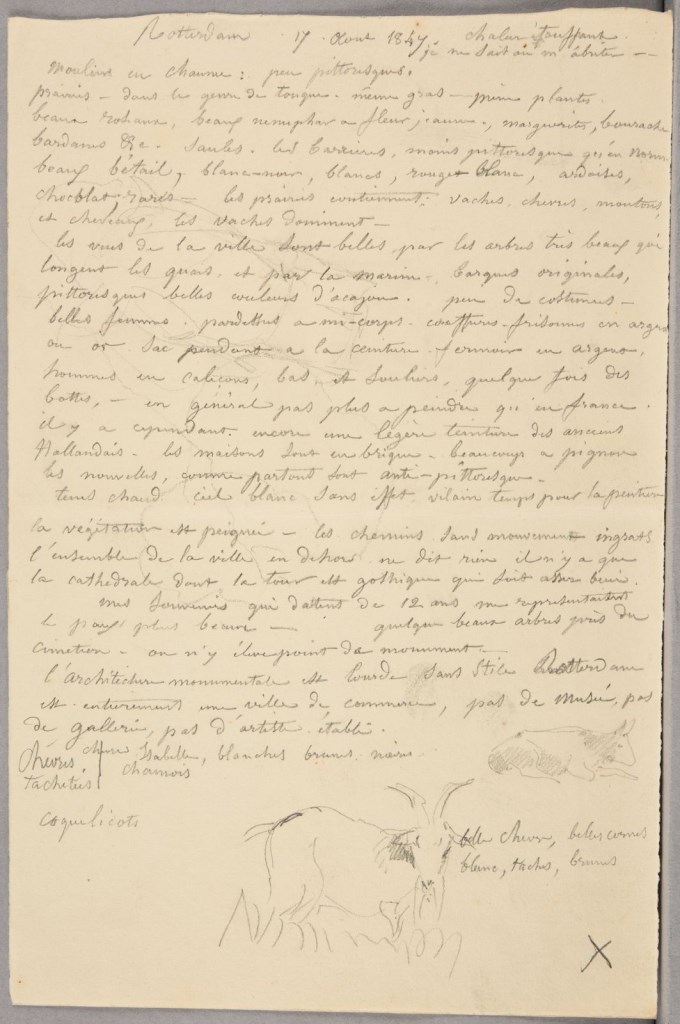 Rotterdam 17 Aout 1847. chaleur étouffante.
je ne sait où m'abriter —
moulins en chaume : peu pittoresques.
prairies — dans le genre de touque. même gras — même plantes.
beaux roseaux, beaux nenuphar a fleur jaune, marguerites, bourache
bardanes &c. Saules. les barrieres, moins pittoresques qu'en
beau bétail, blanc-noir, blancs, rouge blanc, ardoises,
chocolat-rares — les prairies contiennent: vaches, chevres, moutons,
et chevaux, les vaches dominent —
les vues de la ville sont belles par les arbres très beaux qui
longent les quais, et par la marine, barques originales,
pittoresques belles couleurs d'acajou. peu de costumes —
belles femmes. pardessus a mi-corps. coeffures-frisonnes en argent
ou or sac pendant a la ceinture fermoir en argent,
hommes en caleçons, bas et souliers, quelque fois des
bottes, — en général pas plus a peindre qu'en france.
il y a cependant encore une légère teinture des anciens
Hollandais. les maisons sont en brique. beaucoup a pignon
les nouvelles, comme partout sont anti-pittoresque.
tems chaud ciel blanc sans effet. vilain temps pour la peinture
la végétation est peignée — les chemins sans mouvement ingrats
l'ensemble de la ville en dehors ne dit rien il n'y a que
la cathedrale dont la tour est gothique qui soit assez bien.
mes souvenirs qui dattent de 12 ans me representaient
le pays plus beau — quelque beaux arbres près du
cimetiere — on n'y élève point de monument.
l'architecture monumentale est lourde sans stile Rotterdam
est entierement une ville de commerce, pas de musée, pas
de gallerie, pas d'artiste etabli.
chèvres chevre Isabelle, blanches brunes noires
tachetées chamois
coquelicots
belle chevre, belles cornes
blanc, taches, brunes
X